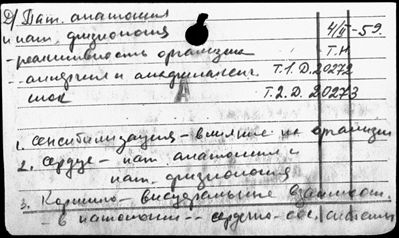 Д) Пат. анатомия 4/II-59.
и пат. физиология
- реактивность организма Т.Н
- аллергия и анафилаксич. Т.1. Д. 20272
шок Т.2. Д. 20273
1. Сенсибилизация - влияние на организм
2. Сердце - пат. анатомия и
пат. физиология
3. Кортико - висцеральные взаимоот.
- в патологии -- сердечно-сос. системы